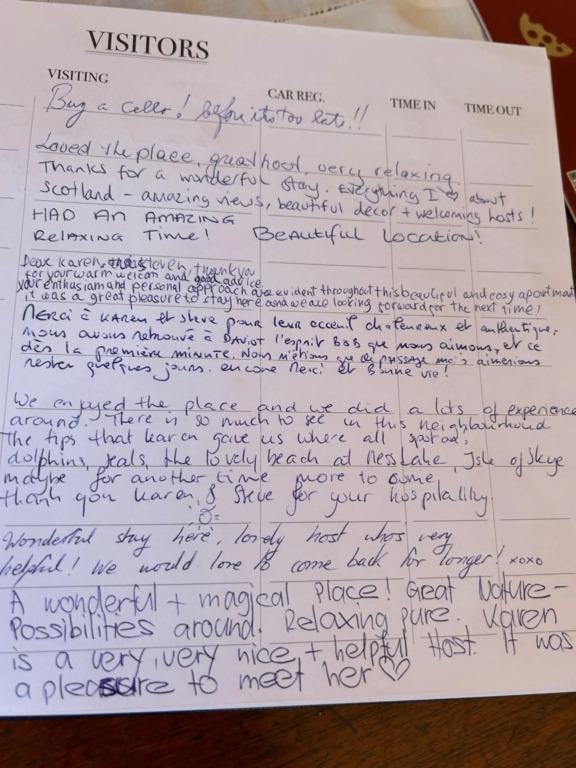 VISITORS
VISITING
CAR REG.
TIME IN
TIME OUT
Buy a cello! before its too late!!
Loved the place, great host, very relaxing
Thanks for a wonderful stay. Everything I ♡ about
Scotland - amazing views, beautiful decor + welcoming hosts!
HAD AN AMAZING
RELAXING TIME! BEAUTIFUL LOCATION!
Dear Karen, Steven, thank you
for your warm welcom and good advice
your enthasiam and personal approach are evident throughout this beautiful and cosy apartmant
it was a great pleasure to stay here and we are looking forward for the next time!
Merci à Karen et Steve pour leur acceuil chaleureux et authentique,
nous avons retrouvé à Daviot l'esprit B&B que nous aimons, et ce
dès la première minute. Nous n'étions que de passage mais aimerions
rester quelques jours. encore Merci et Bonne vie!
We enjoyed the place and we did a lots of experience
around. There is so much to see in this neighbourhoud
The tips that Karen gave us where all spot on,
dolphins, seals, the lovely beach at Ness Lake, Isle of Skye
maybe for another time more to come
thank you Karen & Steve for your hospitality.
Wonderful stay here, lovely host whos very
helpful! We would love to come back for longer! xoxo
A wonderful + magical Place! Great Nature-
Possibilities around. Relaxing pure. Karen
is a very, very nice + helpful Host. It was
a pleasure to meet her ♡